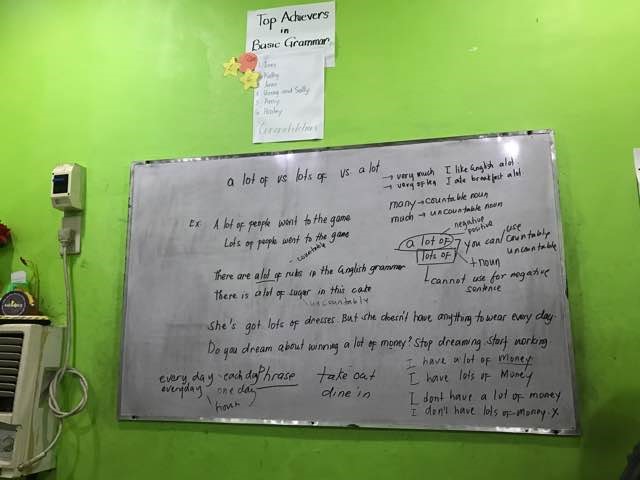 Top Achievers
in
Basic Grammar
Kathy
Anna and Sally
Amy
Congratulations
a lot of vs. lots of vs. a lot
→ very much I like English a lot.
→ very often I ate breakfast a lot
many → countable noun
much → uncountable noun
Ex: A lot of people went to the game
Lots of people went to the game
countable
negative
positive
a lot of
lots of
you can use
countable
uncountable
+ noun
cannot use for negative
sentence
There are a lot of rubs in the English grammar
There is a lot of sugar in this cake
uncountably
She's got lots of dresses. But she doesn't have anything to wear every day.
Do you dream about winning a lot of money? Stop dreaming. Start working
every day - each day phrase
everyday one day
take out
dine in
I have a lot of money
I have lots of Money
I dont have a lot of money
I don't have lots of money. x